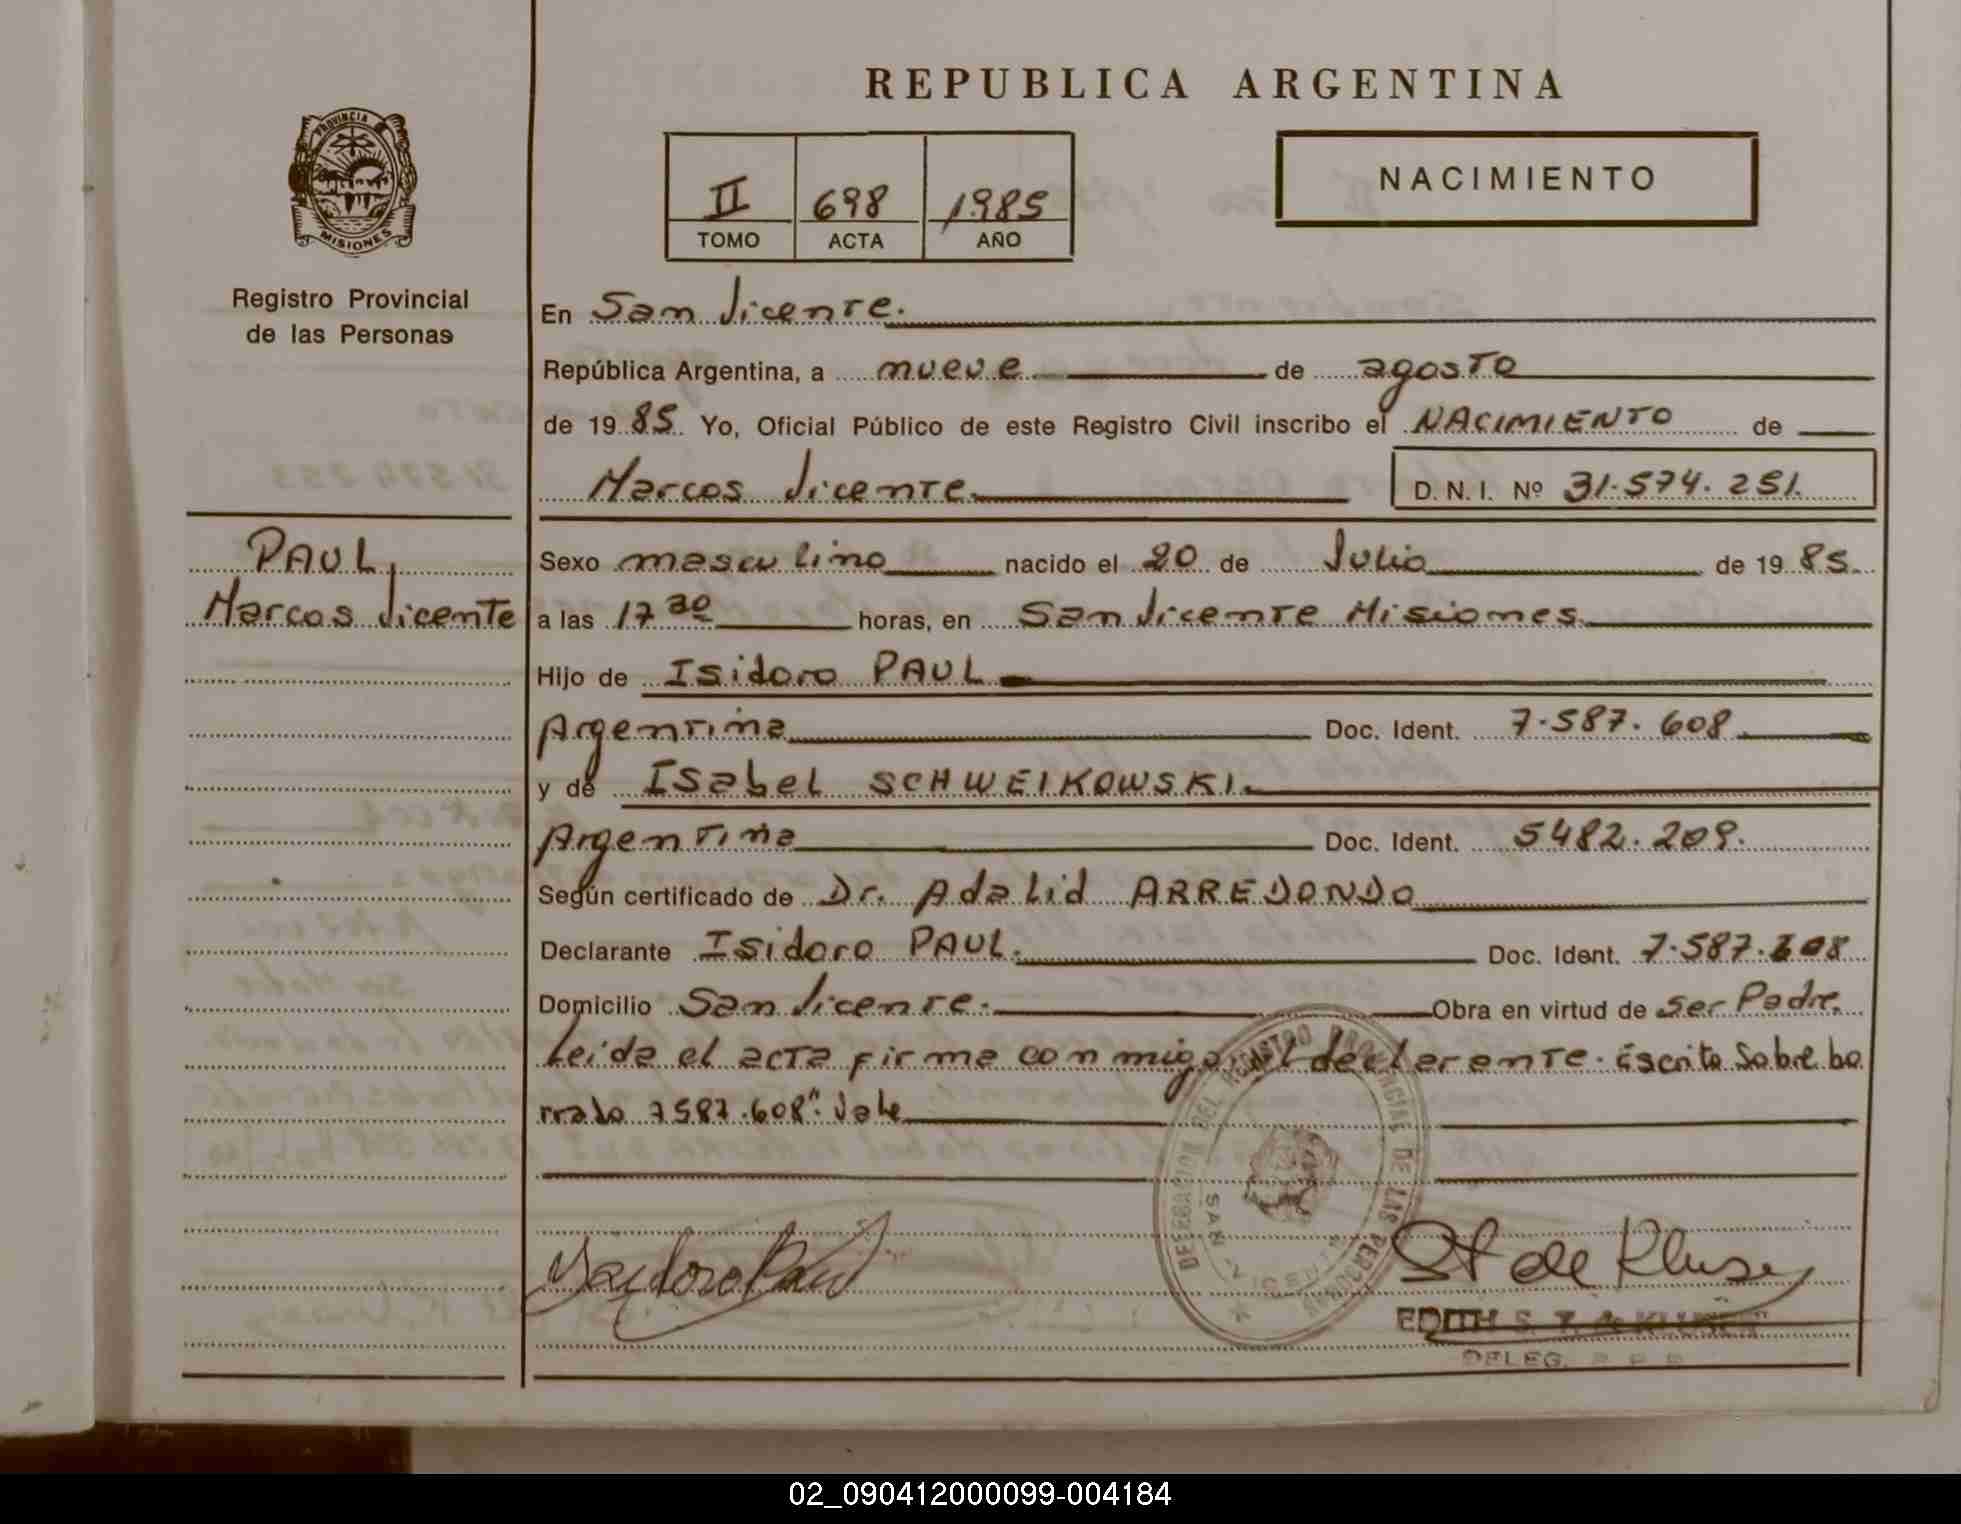 REPUBLICA ARGENTINA
PROVINCIA
MISIONES
Registro Provincial
de las Personas
II 698 1985
TOMO ACTA AÑO
NACIMIENTO
En San Vicente.
República Argentina, a nueve de agosto
de 1985. Yo, Oficial Público de este Registro Civil inscribo el NACIMIENTO de
Marcos Vicente D. N. I. Nº 31.574.251.
PAUL,
Marcos Vicente
Sexo masculino nacido el 20 de Julio de 1985.
a las 17 30 horas, en San Vicente Misiones.
Hijo de Isidoro PAUL
Argentina Doc. Ident. 7.587.608
y de Isabel SCHWEIKOWSKI.
Argentina Doc. Ident. 5482.209.
Según certificado de Dr. Adalid ARREDONDO
Declarante Isidoro PAUL. Doc. Ident. 7.587.608
Domicilio San Vicente. Obra en virtud de ser Padre.
Leida el acta firma conmigo, el declarante. Escrito Sobre bo
rrado 7587.608". Vale
DELEGACION DEL REGISTRO PROVINCIAL DE LAS PERSONAS
SAN VICENTE
Isidoro Paul
St de Kluse
EDITH S. T. de KLUSE
DELEG. R. P. P.
02_090412000099-004184